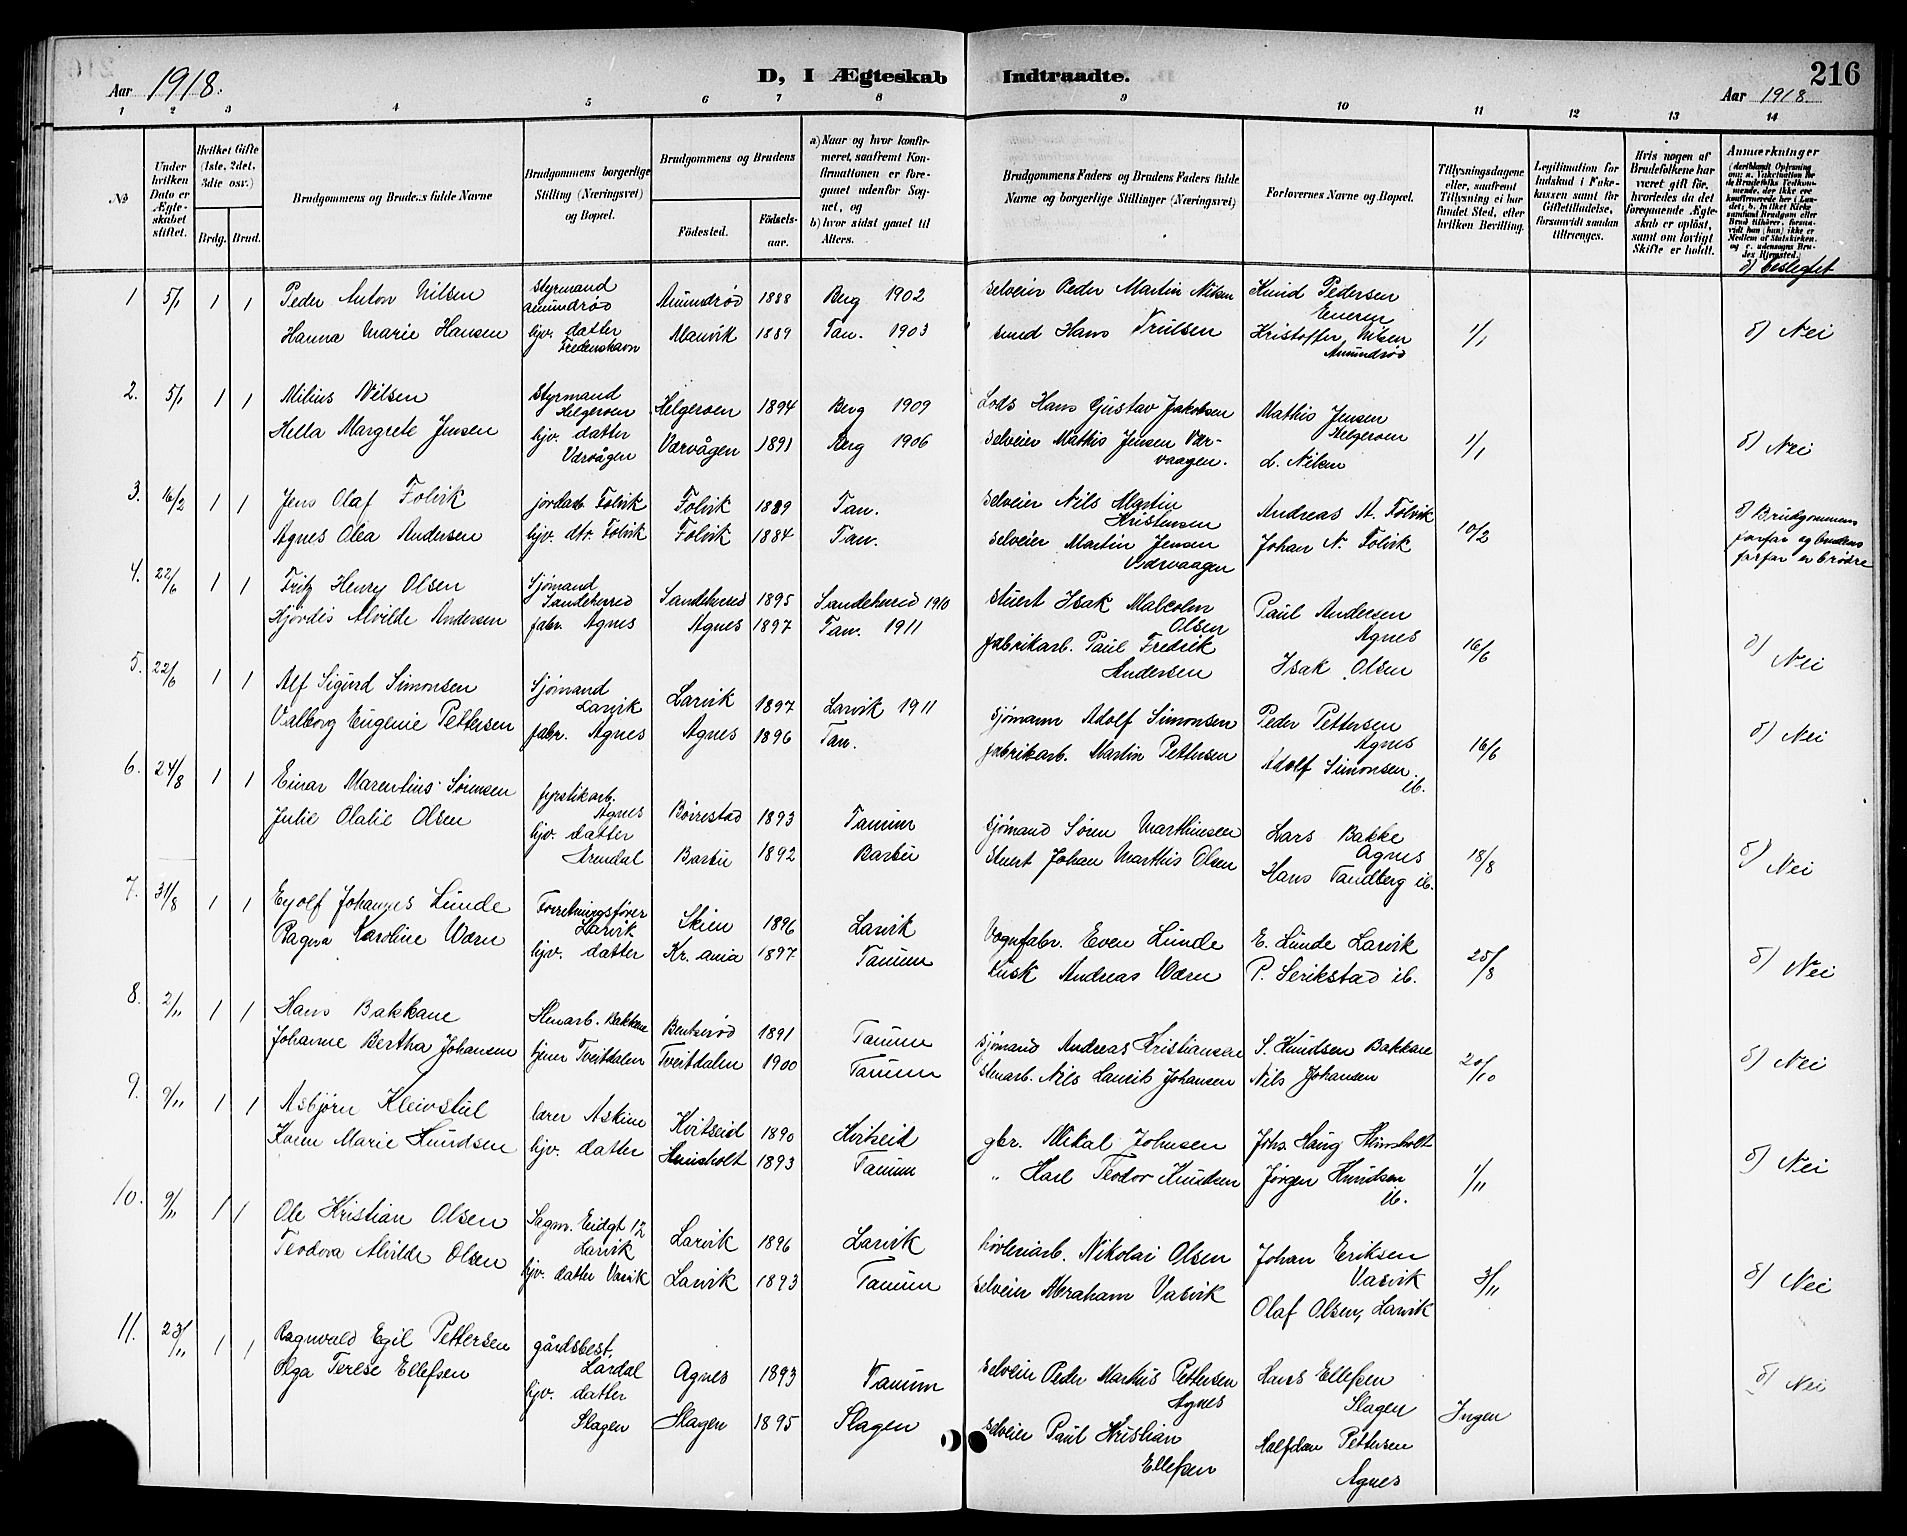 Aar 1918. D, I Ægteskab Indtraadte. Aar 1918. 216
1 2 3 4 5 6 7 8 9 10 11 12 13 14
No
Under hvilken Dato er Ægteskabet stiftet.
Hvilket Gifte (1ste, 2det, 3dte osv.)
Brdg. Brud.
Brudgommens og Brudens fulde Navne
Brudgommens borgerlige Stilling (Næringsvei) og Bopæl.
Brudgommens og Brudens
Fødested. Fødselsaar.
a) Naar og hvor konfirmeret, saafremt Konfirmationen er foregaaet udenfor Sognet, og
b) hvor sidst gaaet til Alters.
Brudgommens Faders og Brudens Faders fulde Navne og borgerlige Stillinger (Næringsvei)
Forlovernes Navne og Bopæl.
Tillysningsdagene eller, saafremt Tillysning ei har fundet Sted, efter hvilken Bevilling.
Legitimation for Indskud i Enkekassen samt for Giftetilladelse, forsaavidt saadan tiltrænges.
Hvis nogen af Brudefolkene har været gift før, hvorledes da det foregaaende Ægteskab er opløst, samt om lovligt Skifte er holdt.
Anmærkninger
d) beslegtet
1 5/1 1 1 Peder Anton Nilsen styrmand Amundrød Amundrød 1888 Berg 1902 Selveier Peder Martin Nilsen Knud Pedersen
Hanna Marie Hansen hjv. datter Fredenshavn Manvik 1889 Tan. 1903 smed Hans Trulsen Kristoffer Nilsen Amundrød 1/1 d) Nei
2. 5/1 1 1 Milius Nilsen Styrmand Helgeroen Helgeroen 1894 Berg 1909 Lods Hans Gustav Jakobsen Mathis Jensen Helgeroen
Hella Margrete Jensen hjv. datter Værvågen Værvågen 1891 Berg 1906 selveier Mathis Jensen Værvaagen. L. Nilsen 1/1 d) Nei
3. 16/2 1 1 Jens Olaf Folvik jordarb. Folvik Folvik 1889 Tan. Selveier Nils Martin Kristensen Andreas A. Folvik
Agnes Olea Andersen hjv. dtr. Folvik Folvik 1884 Tan. Selveier Martin Jensen Værvaagen Johan N. Folvik 10/2 d) Brudgommens farfar og brudens farfar er brødre
4. 22/6 1 1 Fritz Henry Olsen Sjømand Sandeherred Sandeherred 1895 Sandeherred 1910 Stuert Isak Malcolm Olsen Paul Andersen Agnes
Hjørdis Alvilde Andersen fabr. Agnes Agnes 1897 Tan. 1911 fabrikarb. Paul Fredrik Andersen Isak Olsen 16/6 d) Nei
5. 22/6 1 1 Alf Sigurd Simonsen Sjømand Larvik Larvik 1897 Larvik 1911 Sjømann Adolf Simonsen Peder Pettersen Agnes
Valborg Eugenie Pettersen fabr. Agnes Agnes 1896 Tan. fabrikarb. Martin Pettersen Adolf Simonsen ib. 16/6 d) Nei
6. 24/8 1 1 Einar Marentius Sørensen fyrstikarb. Agnes Børrestad 1893 Tanum Sjømand Søren Marthinsen Lars Bakke Agnes
Julie Olatie Olsen hjv. datter Arendal Barbu 1892 Barbu Stuert Johan Marthis Olsen Hans Tandberg ib. 18/8 d) Nei
7. 31/8 1 1 Eyolf Johannes Lunde Forretningsfører Larvik Skien 1896 Larvik Vognfabr. Even Lunde E. Lunde Larvik
Ragna Karoline Wærn hjv. datter Kr.ania 1897 Tanum Lusk Andreas Wærn P. Serikstad ib. 25/8 d) Nei
8. 2/11 1 1 Hans Bakkane Stenarb. Bakkane Bentserød 1891 Tanum Sjømand Andreas Kristiansen S. Knudsen Bakkane
Johanne Bertha Johansen hjem Tveitdalen Tveitdalen 1900 Tanum Stenarb. Nils Laurits Johansen Nils Johansen 20/10 d) Nei
9. 9/11 1 1 Asbjørn Kleivstul lærer Askim Kvitseid 1890 Kvitseid gbr. Mikal Johnsen Johs. Haug Hemsholt
Karen Marie Knudsen hjv. datter Hemsholt 1893 Tanum " Karl Teodor Knudsen Jørgen Knudsen ib. 1/11 d) Nei
10. 9/11 1 1 Ole Kristian Olsen Sagm. Eidgt 12 Larvik Larvik 1896 Larvik høvleriarb. Nikolai Olsen Johan Eriksen Vasvik
Teodora Alvilde Olsen hjv. datter Vasvik Larvik 1893 Tanum Selveier Abraham Vasvik Olaf Olsen, Larvik 3/11 d) Nei
11. 23/11 1 1 Ragnvald Egil Pettersen gårdsbest. Lardal Agnes 1893 Tanum Selveier Peder Markus Pettersen Agnes Hans Ellefsen Slagen
Olga Terese Ellefsen hjv. datter Slagen Slagen 1895 Slagen Selveier Paul Kristian Ellefsen Halfdan Pettersen Agnes Ingen d) Nei